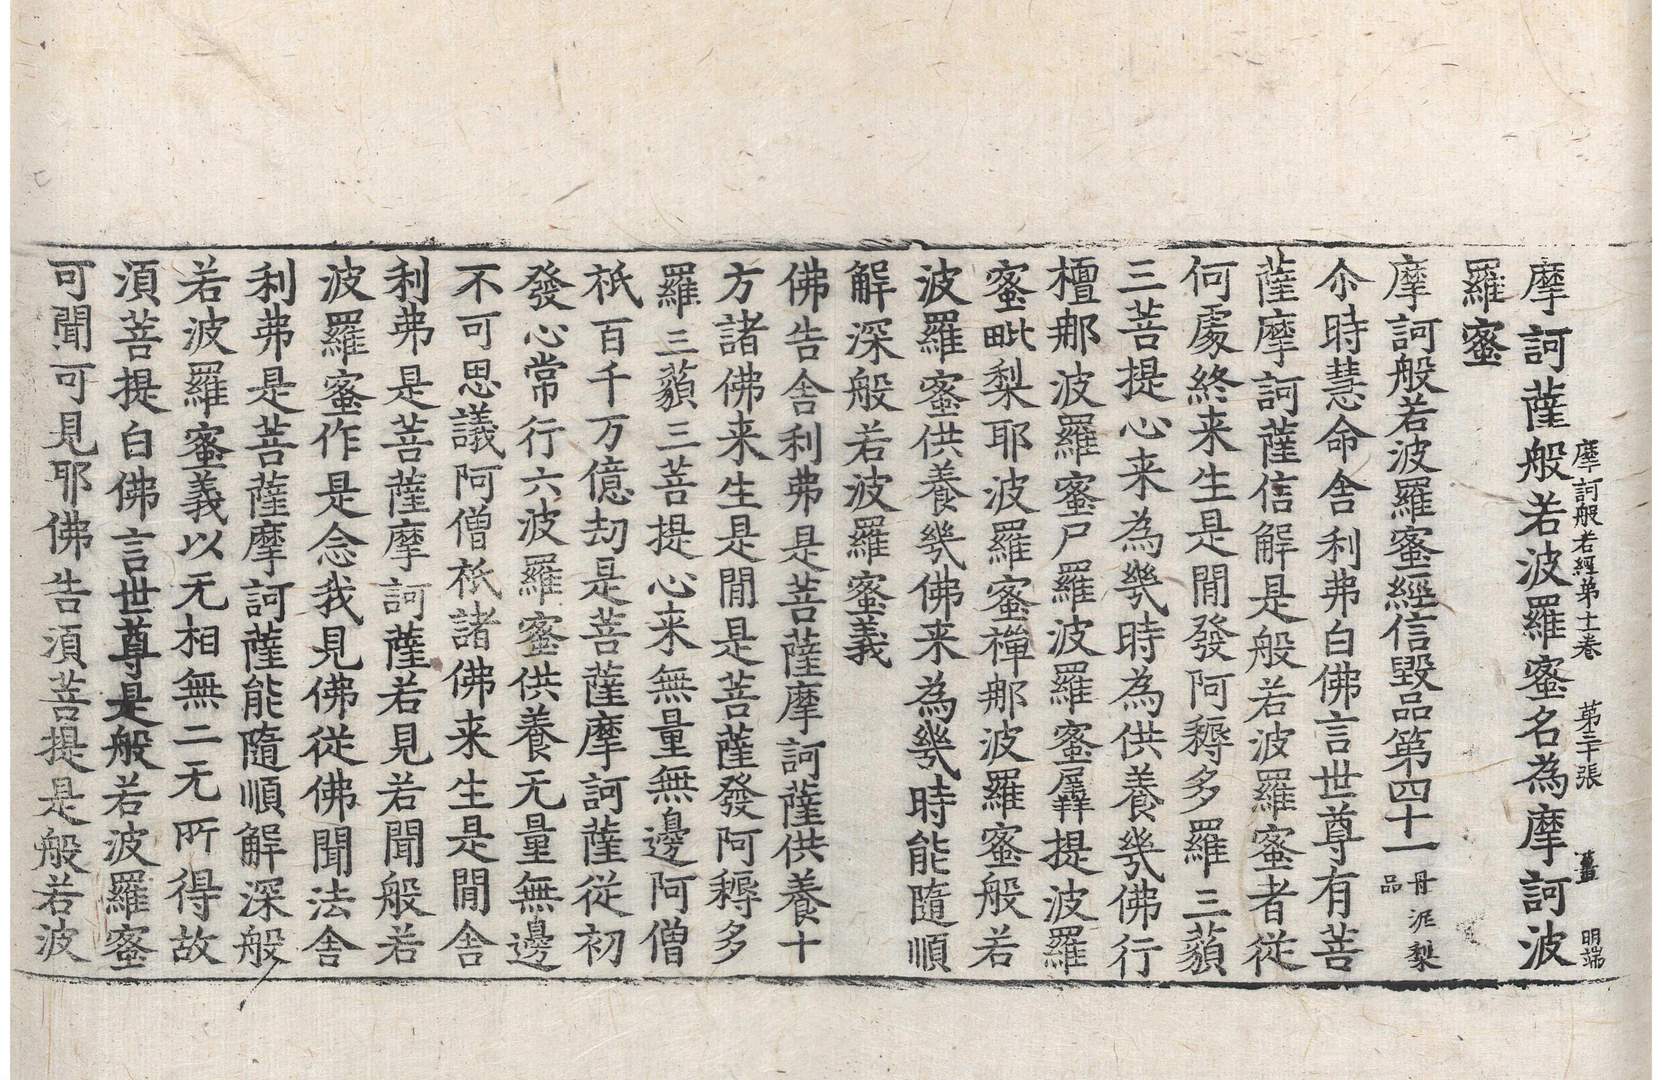 摩訶般若經第十一卷　第三十張　畫　明端
摩訶薩般若波羅蜜名為摩訶波
羅蜜
摩訶般若波羅蜜經信毀品第四十一丹泥犁品
尒時慧命舍利弗白佛言世尊有菩
薩摩訶薩信解是般若波羅蜜者從
何處終来生是閒發阿耨多羅三藐
三菩提心来為幾時為供養幾佛行
檀那波羅蜜尸羅波羅蜜羼提波羅
蜜毗梨耶波羅蜜禪那波羅蜜般若
波羅蜜供養幾佛来為幾時能隨順
解深般若波羅蜜義
佛告舍利弗是菩薩摩訶薩供養十
方諸佛来生是閒是菩薩發阿耨多
羅三藐三菩提心来無量無邊阿僧
祇百千万億劫是菩薩摩訶薩從初
發心常行六波羅蜜供養无量無邊
不可思議阿僧祇諸佛来生是閒舍
利弗是菩薩摩訶薩若見若聞般若
波羅蜜作是念我見佛從佛聞法舍
利弗是菩薩摩訶薩能隨順解深般
若波羅蜜義以无相無二无所得故
須菩提白佛言世尊是般若波羅蜜
可聞可見耶佛告須菩提是般若波